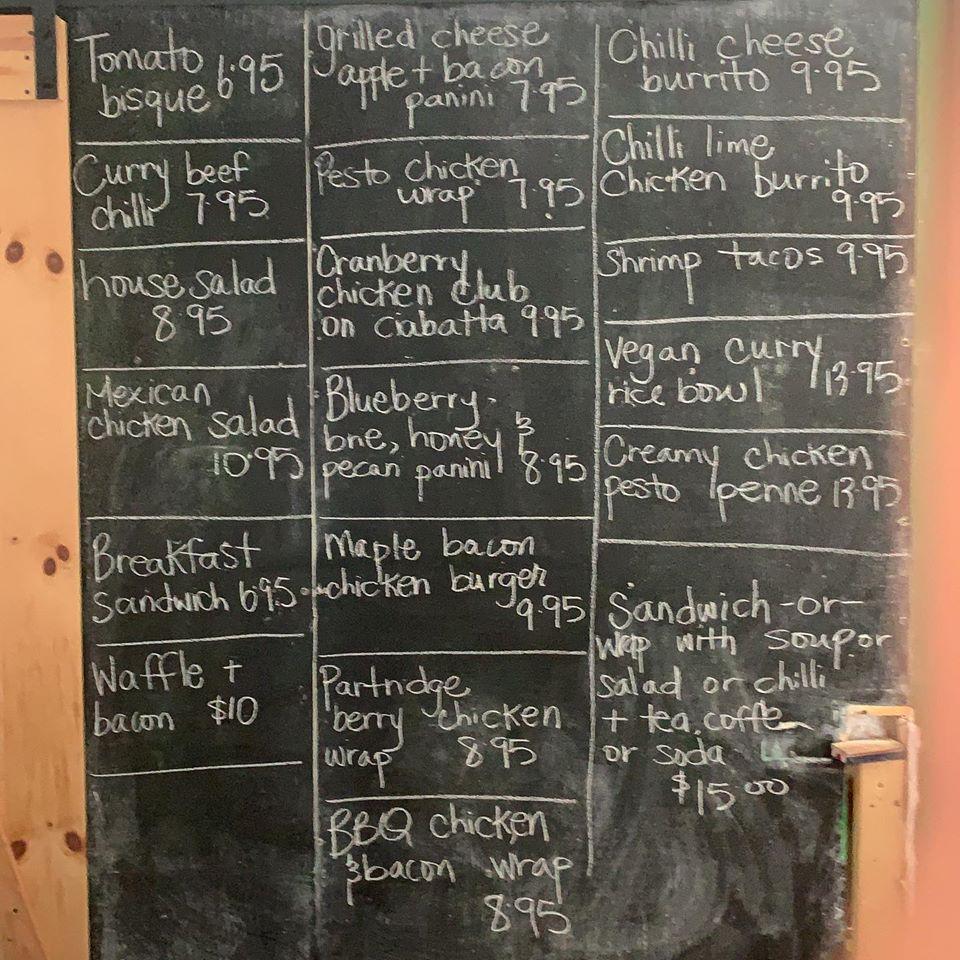 Tomato
bisque 6.95
Curry beef
chilli 7.95
house salad
8 95
Mexican
chicken salad
10.95
Breakfast
Sandwich 695
Waffle +
bacon $10
grilled cheese
apple + bacon
panini 7.95
Pesto chicken
wrap 7.95
Cranberry
chicken club
on ciabatta 9.95
Blueberry,
brie, honey &
pecan panini 8.95
Maple bacon
chicken burger
9.95
Partridge
berry chicken
wrap 8.95
BBQ chicken
& bacon wrap
8.95
Chilli cheese
burrito 9.95
Chilli lime
Chicken burrito
9.95
Shrimp tacos 9.95
Vegan curry
rice bowl 13.95
Creamy chicken
pesto penne 13.95
Sandwich -or-
wrap with soup or
salad or chilli
+ tea, coffe
or soda
$15.00